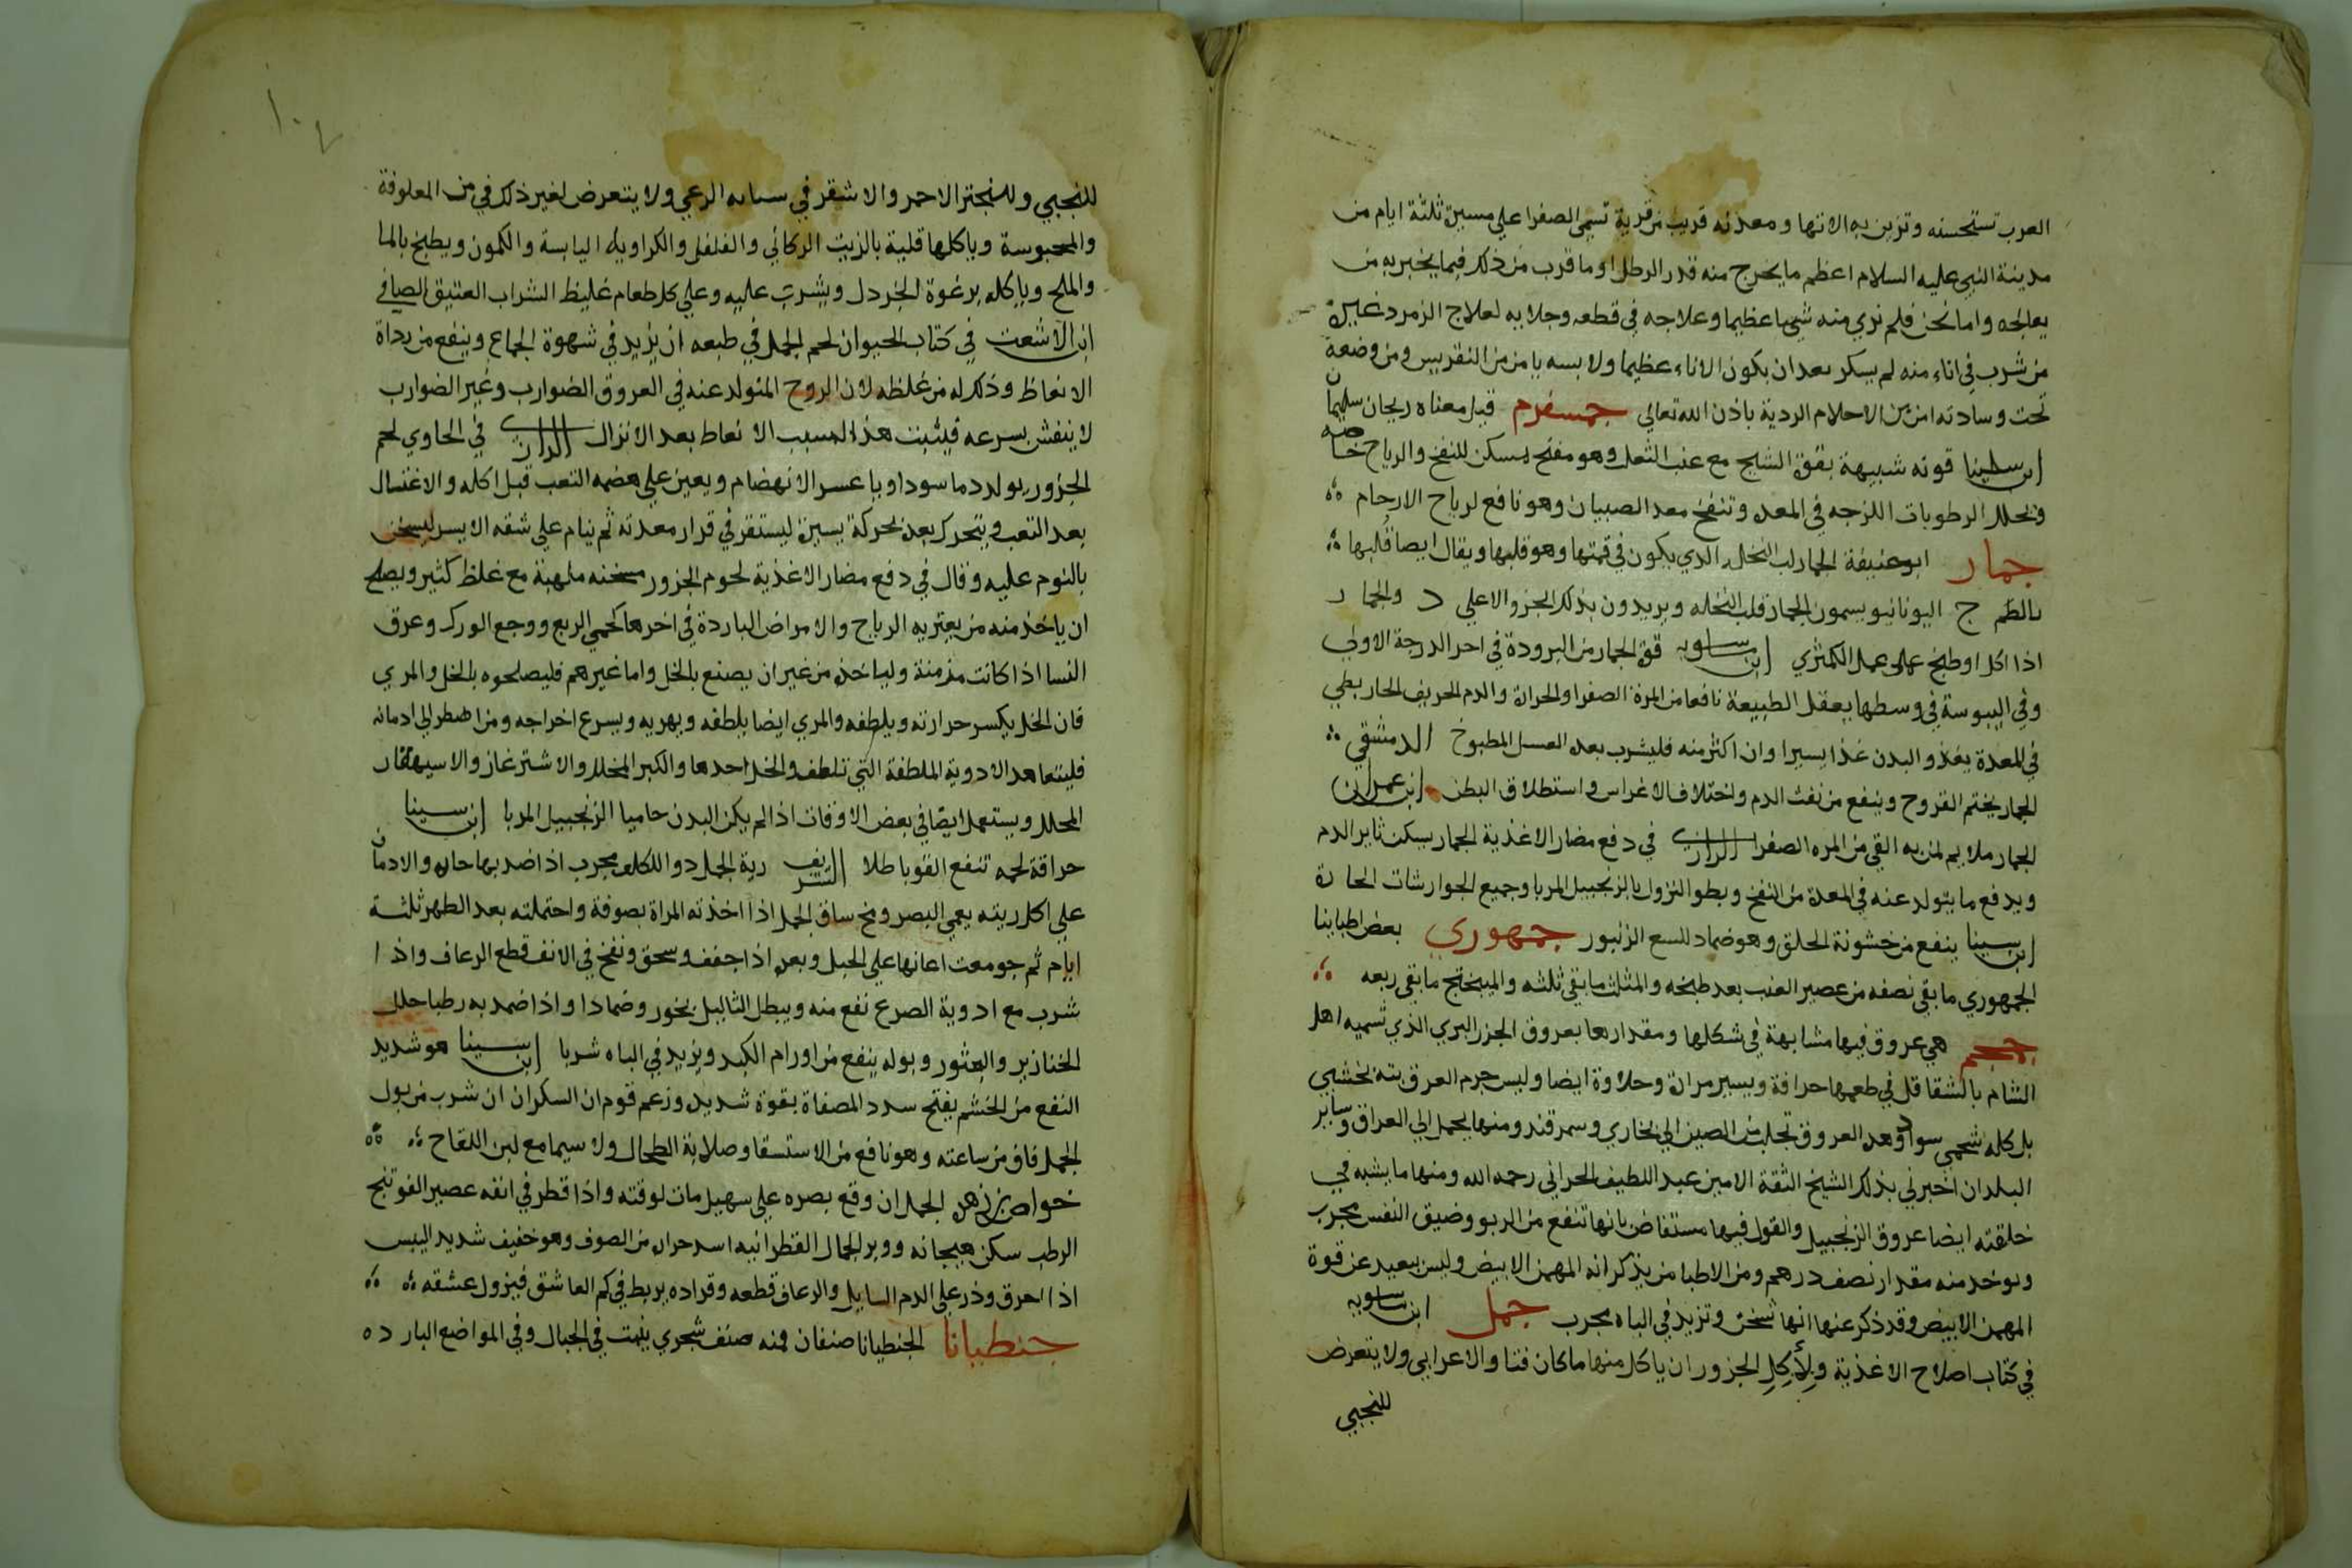 العرب تستحسنه وتزين به الاتها ومعدنه قريب من قرية تسمى الصفرا على مسيرة ثلثة ايام من
مدينة النبي عليه السلام اعظم ما يخرج منه قدر الرطل او ما قرب من ذلك فيما يخبر به من
يعالجه واما نحن فلم نري منه شيا عظيما وعلاجه في قطعه وجلايه لعلاج الزمرد غيره
من شرب في اناء منه لم يسكر بعد ان يكون الاناء عظيما ولابسه يامن من النقريس ومن وضعه
تحت وسادته امن من الاحلام الردية باذن الله تعالي جمسفرم قيل معناه ريحان سليمان
ابن سينا قوته شبيهة بقوة الشيح مع عنب الثعلب وهو مفتح يسكن للنفخ والرياح خاصه
ويحلل الرطوبات اللزجه في المعده وتنفخ معد الصبيان وهو نافع لرياح الارحام
جمار ابو حنيفة الجمار لب النخل الذي يكون في قمتها وهو قلبها ويقال ايضا قلبها
بالظم ج اليونانيو يسمون الجمار قلب النخله ويريدون بذلك الجزو الاعلي د والجمار
اذا اكل او طبخ عمل عمل الكمثري ابن ماسويه قوة الجمار من البرودة في اخر الدرجة الاولي
وفي اليبوسة في وسطها يعقل الطبيعة نافعا من المرة الصفرا والحرارة والدم الحريف الحار بطي
في المعدة يغذو البدن غذا يسيرا وان اكثر منه فليشرب بعده العسل المطبوخ الدمشقي
الجمار يختم القروح وينفع من نفث الدم واختلاف الاغراس واستطلاق البطن ابن عمران
الجمار ملايم لمن به القي من المره الصفرا الرازي في دفع مضار الاغذية الجمار يسكن ثاير الدم
ويدفع ما يتولد عنه في المعدة من النفخ وبطو النزول بالزنجبيل المربا وجميع الجوارشات الحارة
ابن سينا ينفع من خشونة الحلق وهو ضماد للسع الزنبور جمهوري بعض اطباينا
الجمهوري ما بقي نصفه من عصير العنب بعد طبخه والمثلث ما بقي ثلثه والميبختج ما بقي ربعه
هي عروق فيها مشابهة في شكلها ومقدارها بعروق الجزر البري الذي تسميه اهل
الشام بالشقاقل في طعمها حرافة ويسير مرارة وحلاوة ايضا وليس جرم العرق بته بخشبي
بل كله شحمي سوا وهذه العروق تجلب من الصين الي بخاري وسمرقند ومنها يحمل الي العراق وساير
البلدان اخبرني بذلك الشيخ الثقة الامين عبد اللطيف الحراني رحمه الله ومنها ما يشبه في
خلقته ايضا عروق الزنجبيل والقول فيها مستفاض بانها تنفع من الربو وضيق النفس مجرب
ويوخذ منه مقدار نصف درهم ومن الاطبا من يذكر انه البهمن الابيض وليس ببعيد عن قوة
البهمن الابيض وقد ذكر عنها انها تسخن وتزيد في الباه مجرب جمل ابن ماسويه
في كتاب اصلاح الاغذية ولأكل الجزور ان ياكل منها ما كان فتا والاعرابي ولا يتعرض
للنجبي
١٠٧
للنجبي وللنجتر الاحمر والاشقر في الرعي ولا يتعرض لغير ذلك في من المعلوفة
والمحبوسة وياكلها قلية بالزيت الركابي والفلفل والكراويا اليابسة والكمون ويطبخ بالما
والملح وياكله برغوة الخردل ويشرب عليه وعلي كل طعام غليظ الشراب العتيق الصافي
ابن الاشعث في كتاب الحيوان لحم الجمل في طبعه ان يزيد في شهوة الجماع وينفع من رداة
الانعاظ وذكر له من غلظه لان الروح المتولد عنه في العروق الضوارب وغير الضوارب
لا ينفش بسرعه فيثبت هذا السبب الانعاظ بعد الانزال الرازي في الحاوي لحم
الجزور يولد دما سوداويا عسر الانهضام ويعين علي هضمه التعب قبل اكله والاغتسال
بعد التعب ويتحرك بعده بحركة يسيرة ليستقر في قرار معدته ثم ينام علي شقه الايسر ليسخن
بالنوم عليه وقال في دفع مضار الاغذية لحوم الجزور مسخنه ملهبة مع غلظ كثير ويصلح
ان ياخذ منه من يعتريه الرياح والامراض الباردة في اخرها كحمي الربع ووجع الورك وعرق
النسا اذا كانت مزمنة ولياخذه من غير ان يصنع بالخل واما غيرهم فليصلحوه بالخل والمري
فان الخل يكسر حرارته ويلطفه والمري ايضا يلطفه ويهريه ويسرع اخراجه ومن اضطر الي ادمانه
فليتعاهد الادوية الملطفة التي تلطف والخل احدها والكبر المخلل والاشترغاز والاسيهقار
المخلل ويستعمل ايضا في بعض الاوقات اذا لم يكن البدن حاميا الزنجبيل المربا ابن سينا
حراقة لحمه تنفع القوبا طلا الشريف رية الجمل دوا للكلف مجرب اذا ضمد بها حاره والادمان
علي اكل ريته يعمي البصر ومخ ساق الجمل اذا اخذته المراة بصوفة واحتملته بعد الطهر ثلثة
ايام ثم جومعت اعانها علي الحبل وبعره اذا جفف وسحق ونفخ في الانف قطع الرعاف واذا
شرب مع ادوية الصرع نفع منه ويبطل الثاليل بخور وضمادا واذا ضمد به رطبا حلل
الخنازير والبثور وبوله ينفع من اورام الكبد ويزيد في الباه شربا ابن سينا هو شديد
النفع من الخشم يفتح سدد المصفاة بقوة شديده وزعم قوم ان السكران ان شرب من بول
الجمل فاق من ساعته وهو نافع من الاستسقا وصلابة الطحال ولا سيما مع لبن اللقاح
خواص بن زهر الجمل ان وقع بصره علي سهيل مات لوقته واذا قطر في انفه عصير الفوتنج
الرطب سكن هيجانه ووبر الجمال القطرانيه اسد حراره من الصوف وهو خفيف شديد اليبس
اذا احرق وذر علي الدم السايل والرعاف قطعه وقراده يربط في كم العاشق فيزول عشقه
جنطيانا الجنطيانا صنفان فمنه صنف شجري ينبت في الجبال وفي المواضع الباردة